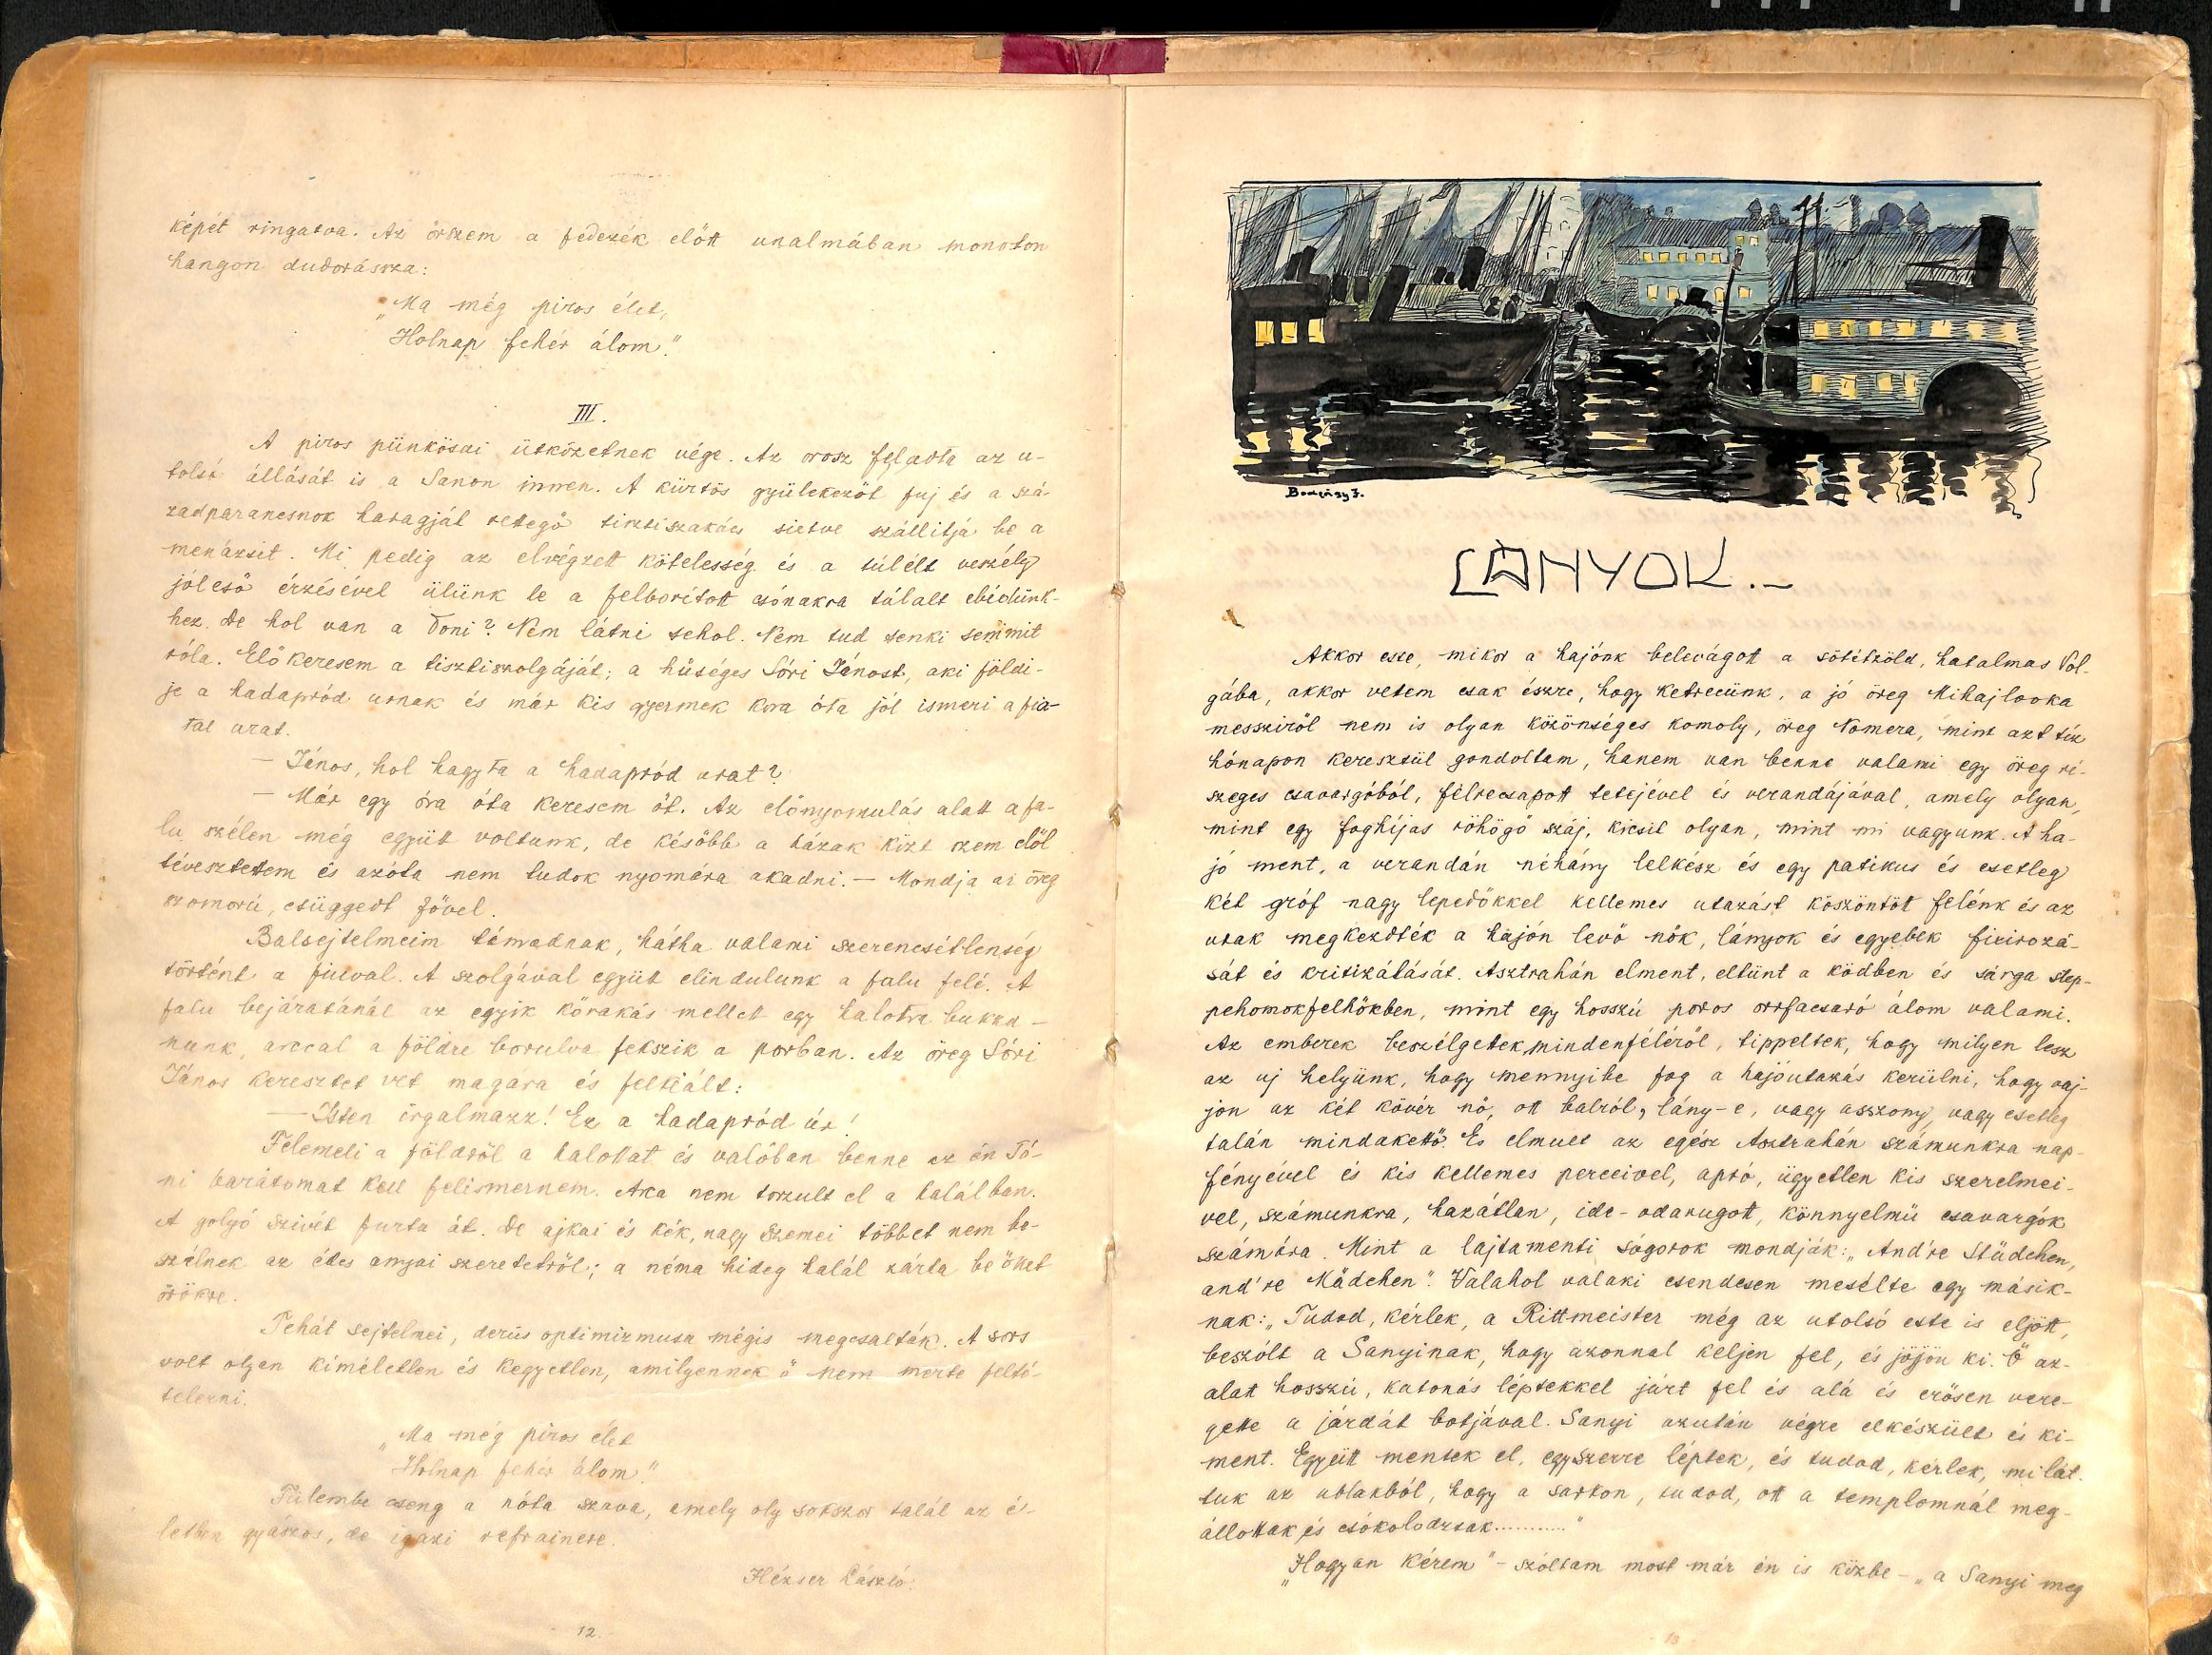 képét ringatva. Az őrszem a fedezék előtt unalmában monoton
hangon dudorássza:
„Ma még piros élet,
Holnap fehér álom."
III.
A piros pünkösdi ütközetnek vége. Az orosz feladta az u-
tolsó állását is a Sanon innen. A kürtös gyülekezőt fuj és a szá-
zadparancsnok haragját rettegő tisztiszakács sietve szállitja be a
menázsit. Mi pedig az elvégzett kötelesség és a túlélt veszély
jóleső érzésével ülünk le a felborított csónakra tálalt ebédünk-
hez. De hol van a Toni? Nem látni sehol. Nem tud senki semmit
róla. Előkeresem a tisztiszolgáját; a hűséges Sóri Jánost, aki földi-
je a hadapród urnak és már kis gyermek kora óta jól ismeri a fia-
tal urat.
— János, hol hagyta a hadapród urat?
— Már egy óra óta keresem őt. Az előnyomulás alatt a fa-
lu szélen még együtt voltunk, de később a házak közt szem elől
tévesztettem és azóta nem tudok nyomára akadni. — Mondja az öreg
szomorú, csüggedt fővel.
Balsejtelmeim támadnak, hátha valami szerencsétlenség
történt a fiuval. A szolgával együtt elindulunk a falu felé. A
falu bejáratánál az egyik kőrakás mellett egy halottra bukka-
nunk, arccal a földre borulva fekszik a porban. Az öreg Sóri
János keresztet vet magára és felkiált:
— Isten irgalmazz! Ez a hadapród úr!
Felemeli a földről a halottat és valóban benne az én Tó-
ni barátomat kell felismernem. Arca nem torzult el a halálban.
A golyó szivét furta át. De ajkai és kék, nagy szemei többet nem be-
szélnek az édes anyai szeretetről; a néma hideg halál zárta be őket
örökre.
Tehát sejtelmei, derüs optimizmusa mégis megcsalták. A sors
volt olyan kíméletlen és kegyetlen, amilyennek ő nem merte felté-
telezni.
„Ma még piros élet
Holnap fehér álom."
Fülembe cseng a nóta szava, amely oly sokszor talál az é-
letben gyászos, de igazi refrainere.
Hézser László.
12.
Bodnószy F.
LÁNYOK.-
Akkor este, mikor a hajónk belevágott a sötétzöld, hatalmas Vol-
gába, akkor vettem csak észre, hogy ketrecünk, a jó öreg Mihajlovka
messziről nem is olyan közönséges komoly, öreg Nomera, mint azt tíz
hónapon keresztül gondoltam, hanem van benne valami egy öreg ré-
szeges csavargóból, félrecsapott tetejével és verandájával, amely olyan,
mint egy foghíjas röhögő száj, kicsit olyan, mint mi vagyunk. A ha-
jó ment, a verandán néhány lelkész és egy patikus és esetleg
két gróf nagy lepedőkkel kellemes utazást köszöntött felénk és az
urak megkezdték a hajón levő nők, lányok és egyebek fixirozá-
sát és kritizálását. Asztrahán elment, eltünt a ködben és sárga step-
pehomokfelhőkben, mint egy hosszú poros orrfacsaró álom valami.
Az emberek beszélgettek mindenféléről, tippeltek, hogy milyen lesz
az uj helyünk, hogy mennyibe fog a hajóutazás kerülni, hogy vaj-
jon az két kövér nő, ott balról, lány-e, vagy asszony, vagy esetleg
talán mindakettő. És elmult az egész Asztrahán számunkra nap-
fényével és kis kellemes perceivel, apró, ügyetlen kis szerelmei-
vel, számunkra, hazátlan, ide-odarugott, könnyelmü csavargók
számára. Mint a lajtamenti sógorok mondják: „And're Städchen,
and're Mädchen". Valahol valaki csendesen mesélte egy másik-
nak: „Tudod, kérlek, a Rittmeister még az utolsó este is eljött,
beszólt a Sanyinak, hogy azonnal keljen fel, és jöjjön ki. Ő az-
alatt hosszú, katonás léptekkel járt fel és alá és erősen vere-
gette a járdát botjával. Sanyi azután végre elkészült és ki-
ment. Együtt mentek el, egyszerre léptek, és tudod, kérlek, mi lát-
tuk az ablakból, hogy a sarkon, tudod, ott a templomnál meg-
állottak és csókolodztak..........."
„Hogyan kérem" - szóltam most már én is közbe - „a Sanyi meg
13